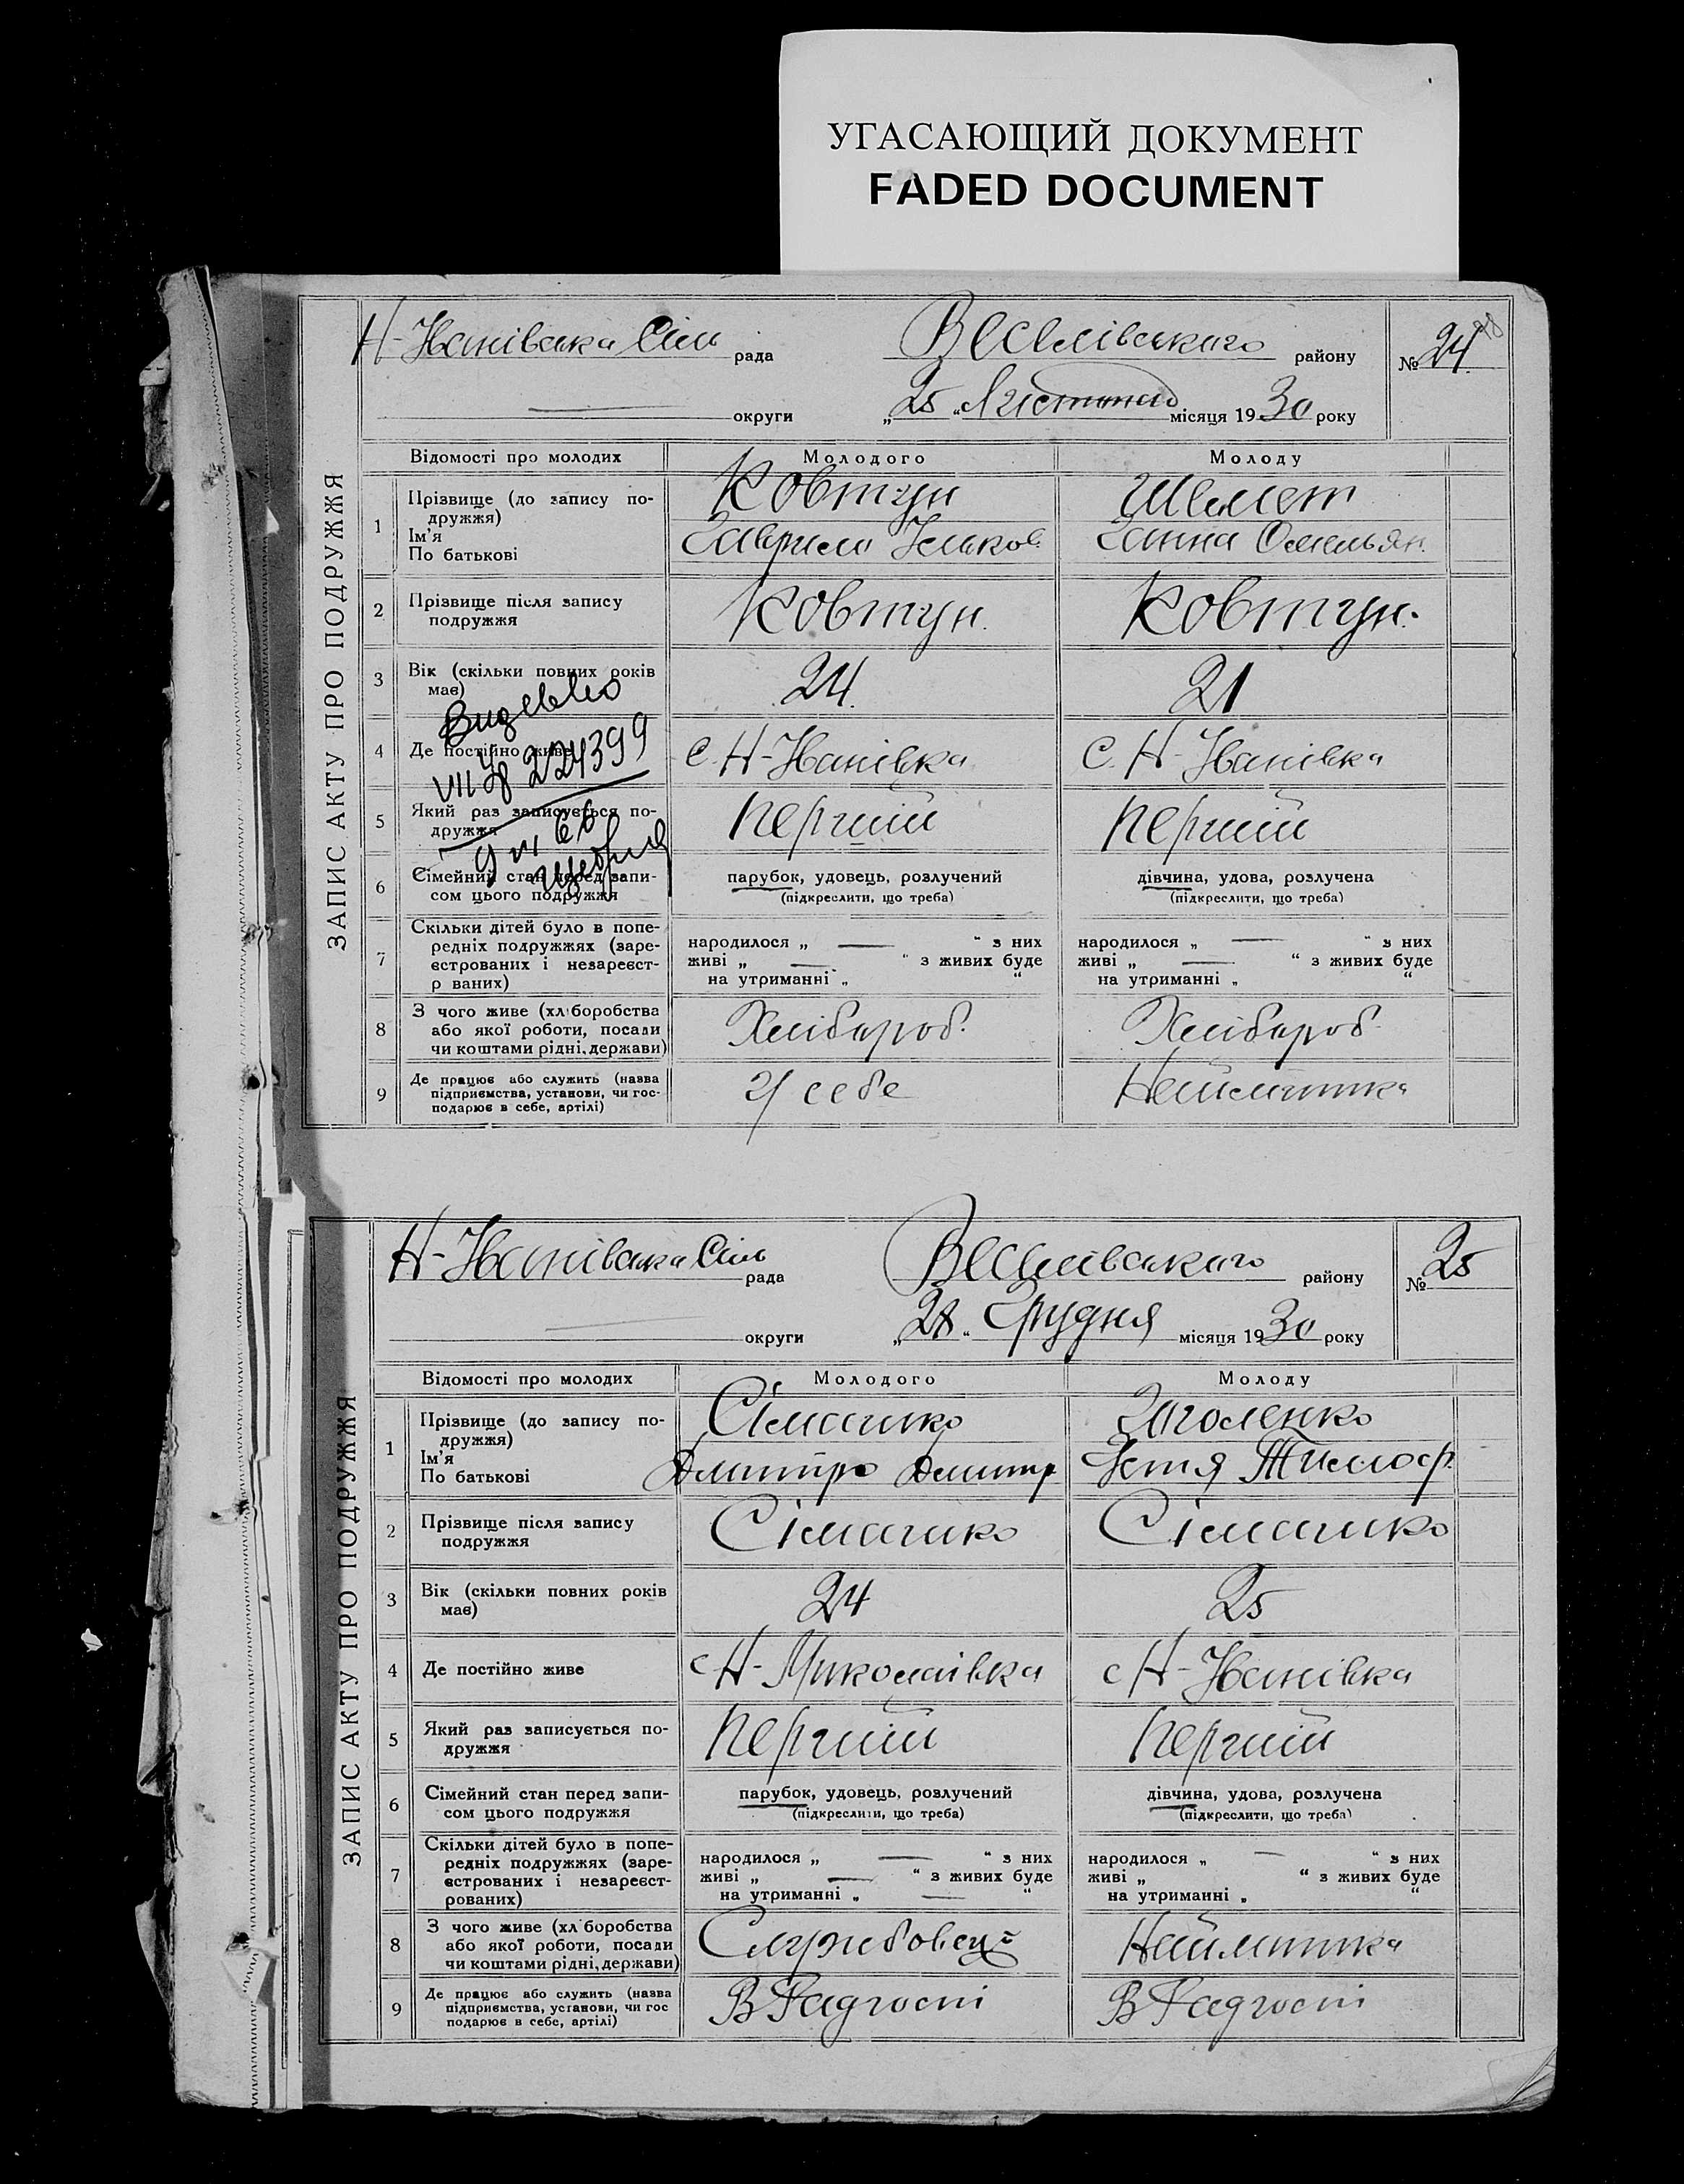 УГАСАЮЩИЙ ДОКУМЕНТ
FADED DOCUMENT
ЗАПИС АКТУ ПРО ПОДРУЖЖЯ
Н-Іванівська Сіль рада Веселівського району № 24
округи „25“ Листопад місяця 1930 року
Відомості про молодих Молодого Молоду
1 Прізвище (до запису по- Ковтун Шемет
дружжя)
Ім'я Гаврило Ганна Омельян.
По батькові
2 Прізвище після запису Ковтун. Ковтун.
подружжя
3 Вік (скільки повних років 24. 21
має)
Видевлео
4 Де постійно живе с. Н-Іванівка с. Н-Іванівка
224399
5 Який раз записується по- Перший Перший
дружжя
6 Сімейний стан перед запи- парубок, удовець, розлучений дівчина, удова, розлучена
сом цього подружжя (підкреслити, що треба) (підкреслити, що треба)
7 Скільки дітей було в попе-
редніх подружжях (заре- народилося „ — “ з них народилося „ — “ з них
єстрованих і незареєст- живі „ — “ з живих буде живі „ — “ з живих буде
р ваних) на утриманні „ “ на утриманні „ “
8 З чого живе (хл боробства Хлібороб. Хлібороб
або якої роботи, посади
чи коштами рідні, держави)
9 Де працює або служить (назва У себе Наймичка
підприємства, установи, чи гос-
подарює в себе, артілі)
ЗАПИС АКТУ ПРО ПОДРУЖЖЯ
Н-Іванівська Сіль рада Веселівського району № 25
округи „28“ Грудня місяця 1930 року
Відомості про молодих Молодого Молоду
1 Прізвище (до запису по- Сімашко Заголенко
дружжя)
Ім'я Дмитро Дмитр. Устя Тимоф.
По батькові
2 Прізвище після запису Сімашко Сімашко
подружжя
3 Вік (скільки повних років 24 25
має)
4 Де постійно живе с Н-Миколаївка с Н-Іванівка
5 Який раз записується по- Перший Перший
дружжя
6 Сімейний стан перед запи- парубок, удовець, розлучений дівчина, удова, розлучена
сом цього подружжя (підкреслити, що треба) (підкреслити, що треба)
7 Скільки дітей було в попе-
редніх подружжях (заре- народилося „ — “ з них народилося „ — “ з них
єстрованих і незареєст- живі „ — “ з живих буде живі „ “ з живих буде
рованих) на утриманні „ — “ на утриманні „ “
8 З чого живе (хл боробства Службовець Наймичка
або якої роботи, посади
чи коштами рідні, держави)
9 Де працює або служить (назва В Радгоспі В Радгоспі
підприємства, установи, чи гос
подарює в себе, артілі)